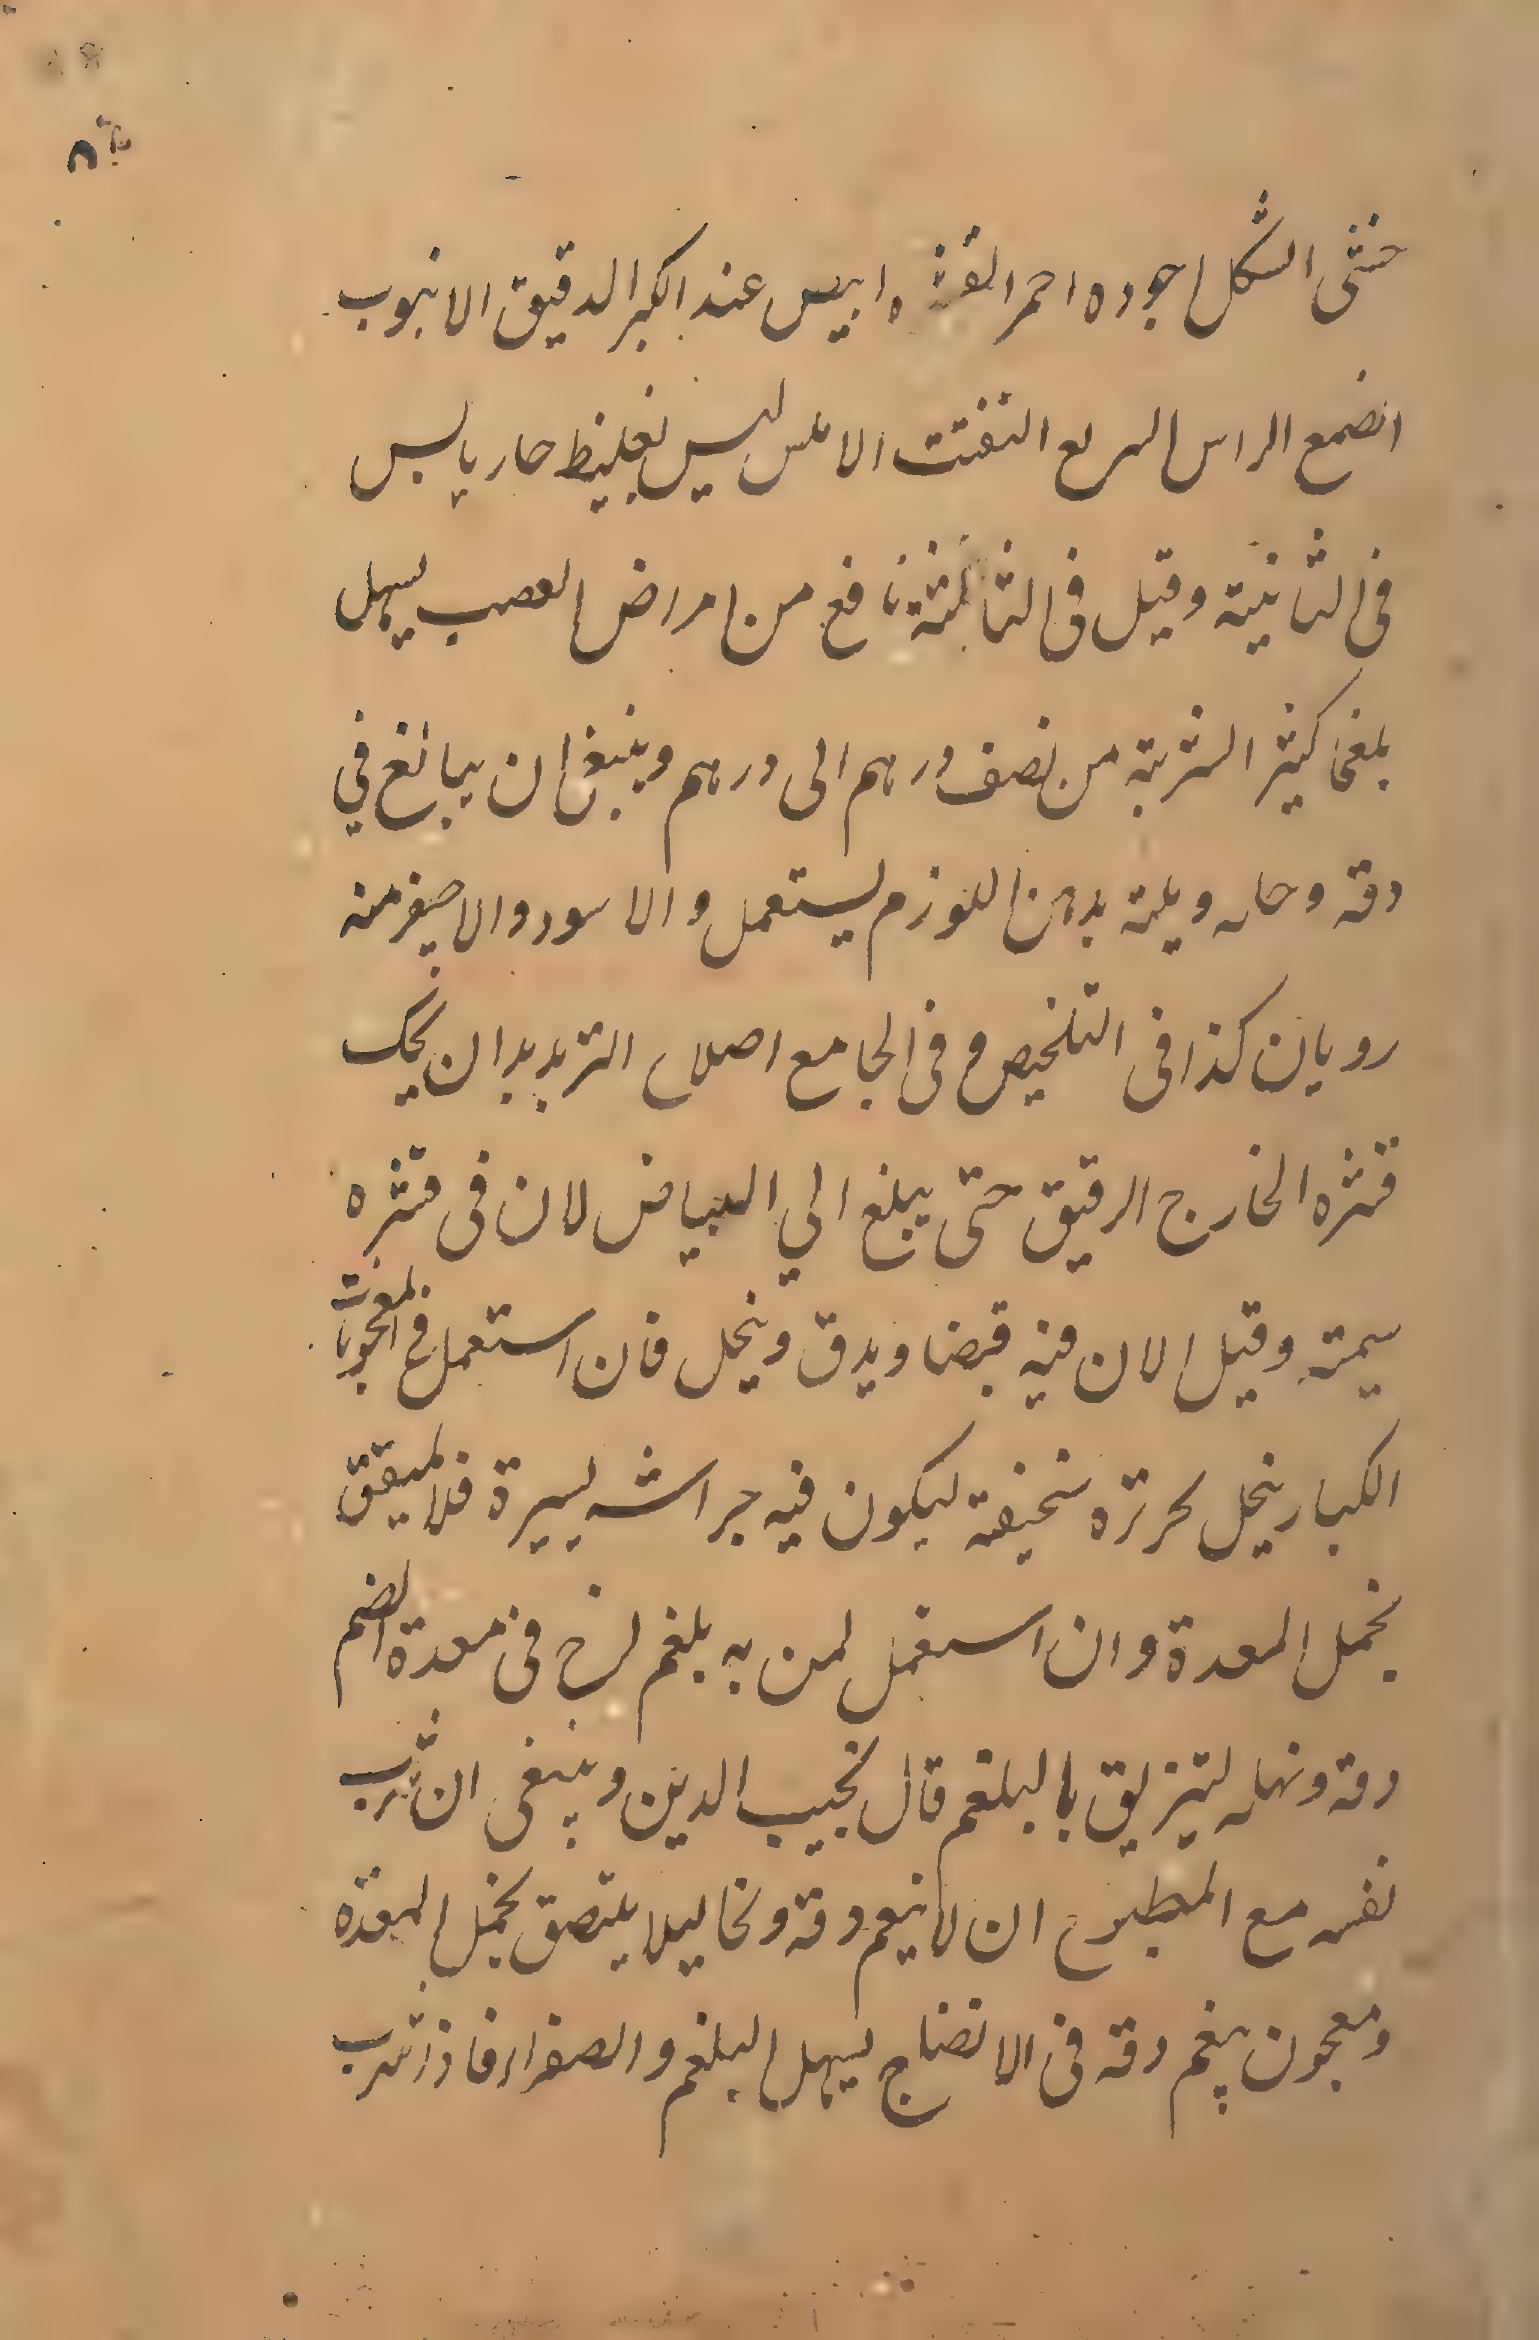 خنثى الشكل اجوده احمر القشرة ابيض عند الكبر الدقيق الانبوب
انضمع الراس السريع التفتت الاملس ليس بغليظ حار يابس
فى الثانية وقيل فى الثالثة نافع من امراض العصب يسهل
بلغما كثير الشربة من نصف درهم الى درهم وينبغى ان يبالغ في
دقه و حله ويلته بدهن اللوز ثم يستعمل و الاسود والاصفر منه
رويان كذا فى التلخيص و فى الجامع اصلاح التربد بان يحك
قشره الخارج الرقيق حتى يبلغ الي البياض لان فى قشره
سميته وقيل لان فيه قبضا ويدق وينخل فان استعمل فى المعجونات
الكبار ينخل بحريره سخيفة ليكون فيه جراشه يسيرة فلا
بخمل المعدة و ان استعمل لمن به بلغم لزج فى معدة
دقه و نخله ليتزيق بالبلغم قال نجيب الدين و ينبغى ان شرب
نفسه مع المطبوخ ان لا ينعم دقه و نخله ليلا يلتصق بخمل المعدة
و معجون ينعم دقه فى الانضاج يسهل البلغم و الصفراء فاذا شرب